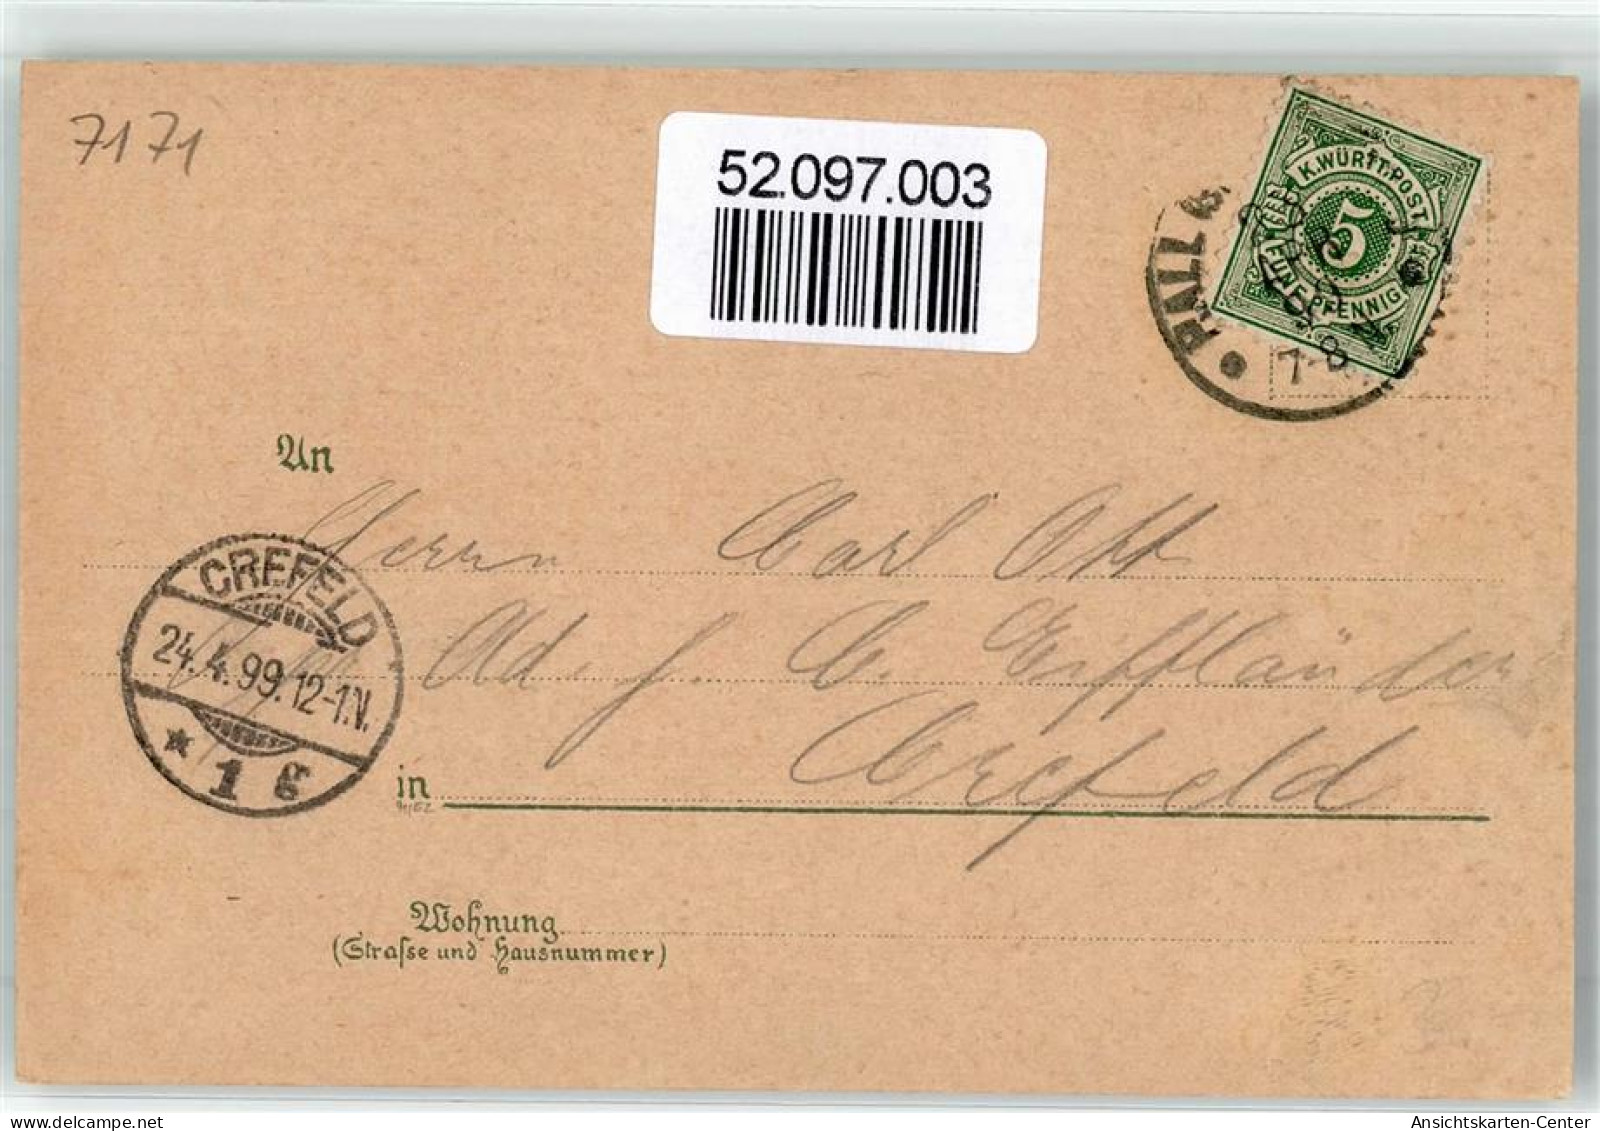 7171
52.097.003
K.WÜRTT.POST
5
FÜNF PFENNIG
HALL
7-8
An
Herrn Carl Ott
CREFELD
24.4.99.12-1.N.
* 1 g
Adr. C.
in Crefeld
Wohnung
(Strasse und Hausnummer)
delcampe.net
Ansichtskarten-Center